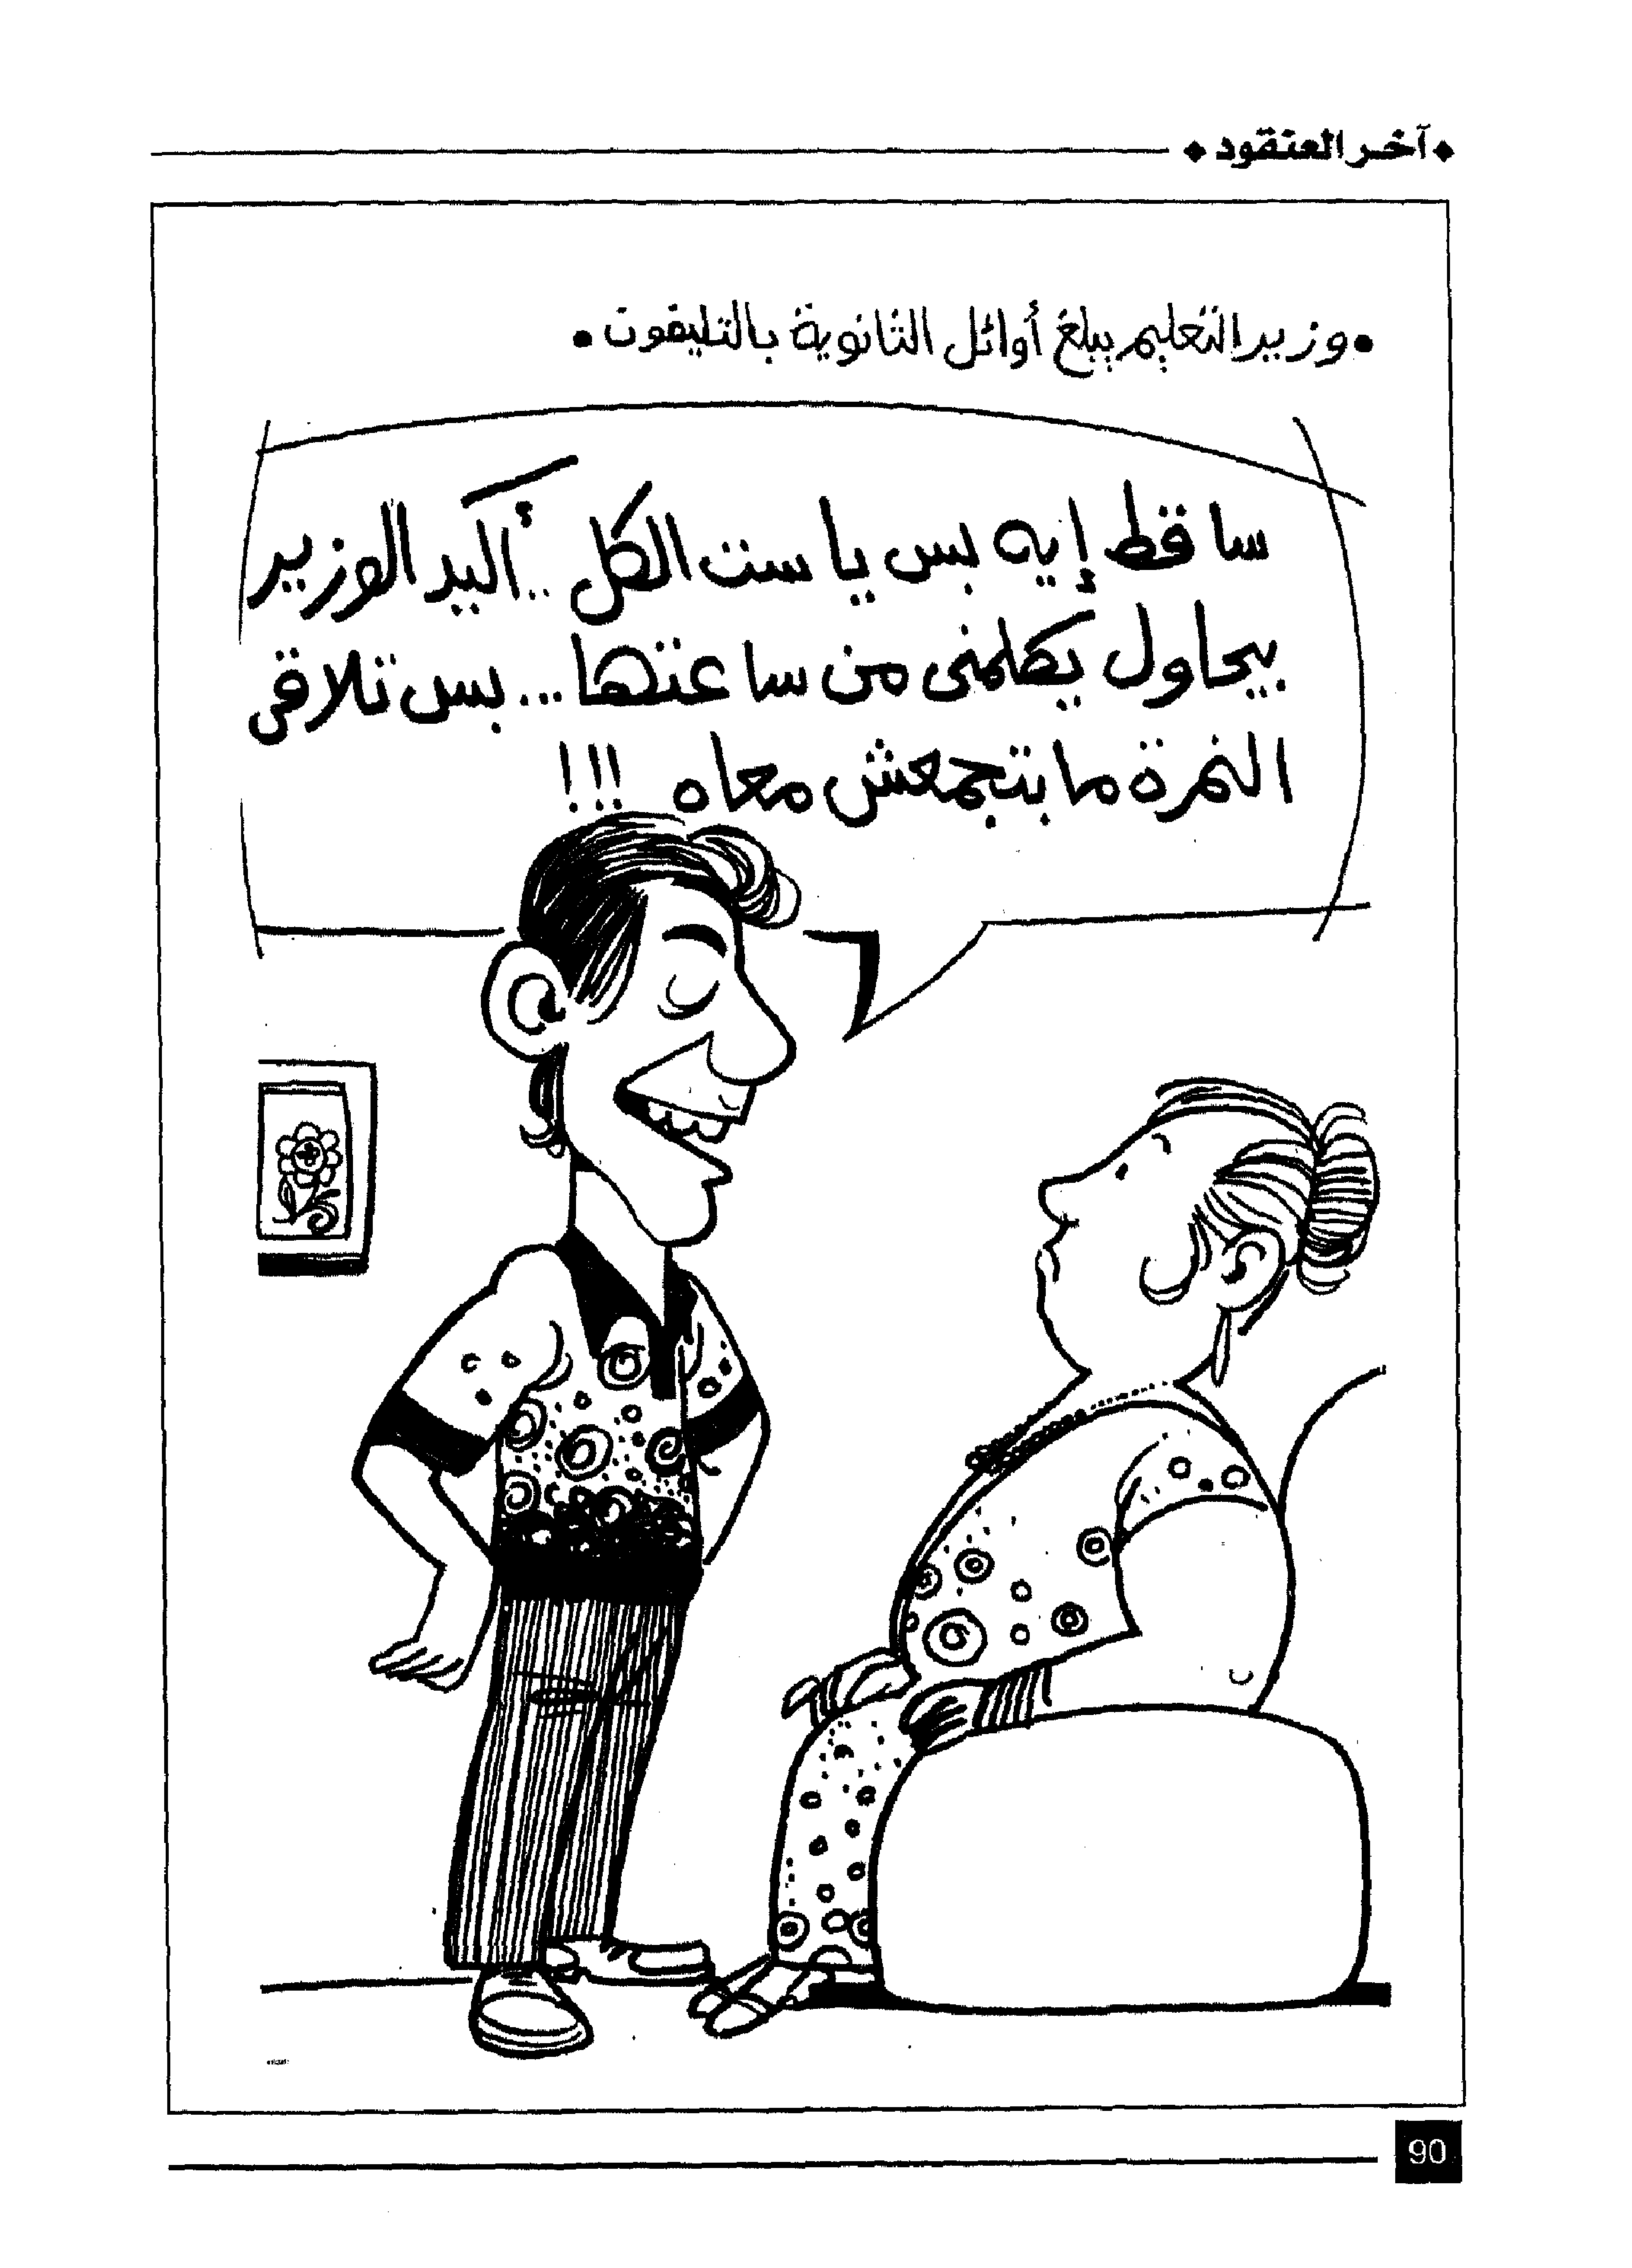 آخر العنقود
• وزير التعليم يبلغ أوائل الثانوية بالتليفون •
ساقط إيه بس يا ست الكل .. أكيد الوزير
بيحاول يكلمنى من ساعتها ... بس تلاقى
النمرة ما بتجمعش معاه !!!
90